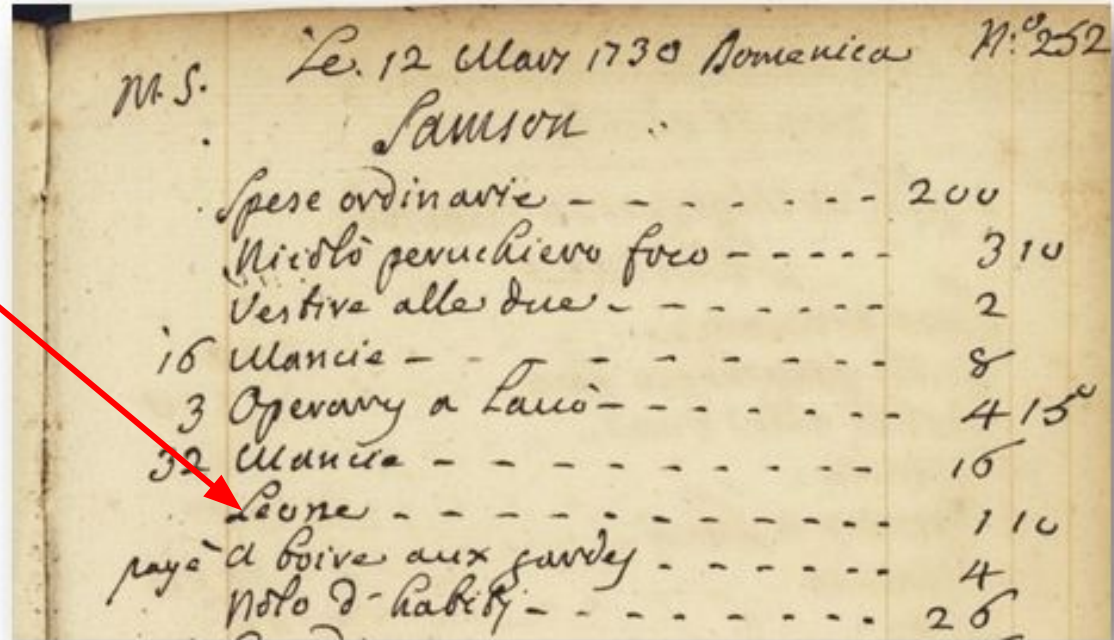 Le. 12 Mars 1730 Domenica N:º 252
M. S.
Samson
Spese ordinarie - - - - - - - - 200
Nicolò peruchiero foco - - - - - 3 10
Vestire alle due - - - - - - - 2
16 Mancie - - - - - - - - 8
3 Operary a - - - - - - - 4 15
32 Mancie - - - - - - - - - 16
Leone - - - - - - - - - - - 1 10
payè a boire aux gardes - - - - - - 4
Nolo d'habiti - - - - - - - - 26